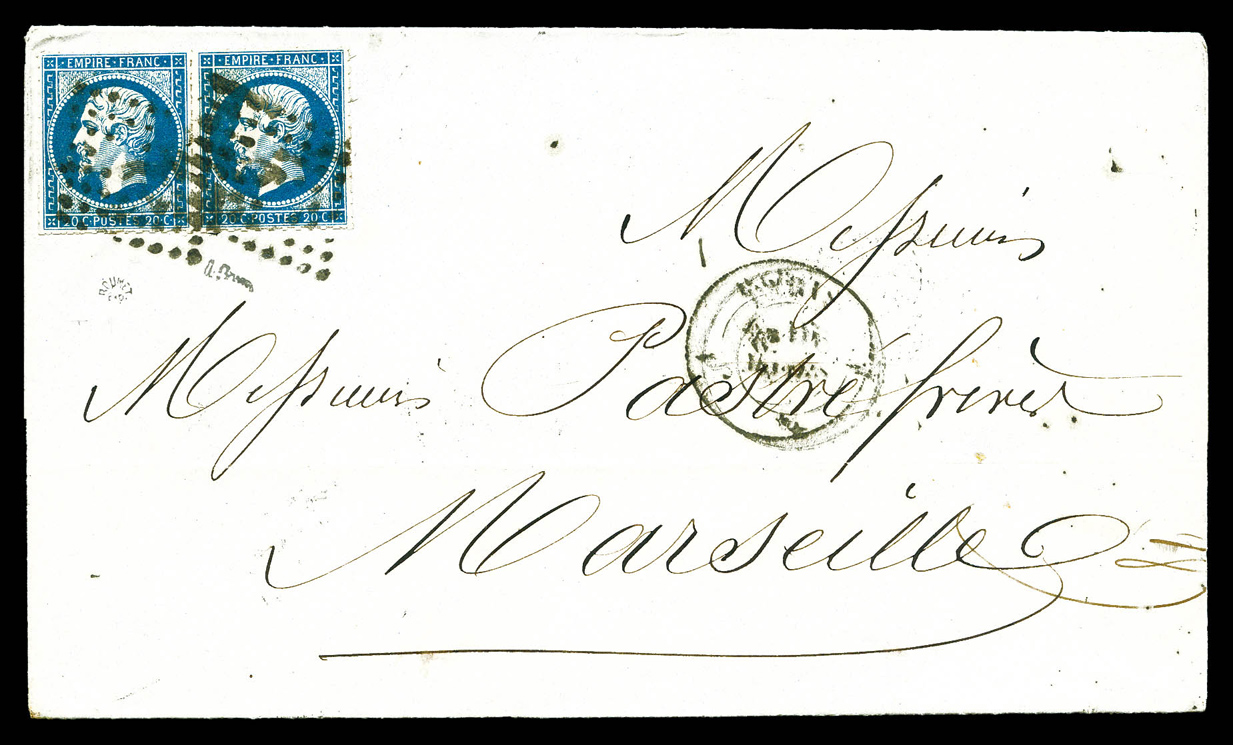 EMPIRE · FRANC · EMPIRE · FRANC ·
20 · C · POSTES · 20 · C · 20 · C · POSTES · 20 · C ·
Messieurs
Messieurs Pastré frères
Marseille